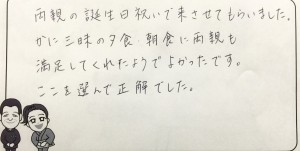 両親の誕生日祝いで来させてもらいました。
かに三昧の夕食、朝食に両親も
満足してくれたようでよかったです。
ここを選んで正解でした。